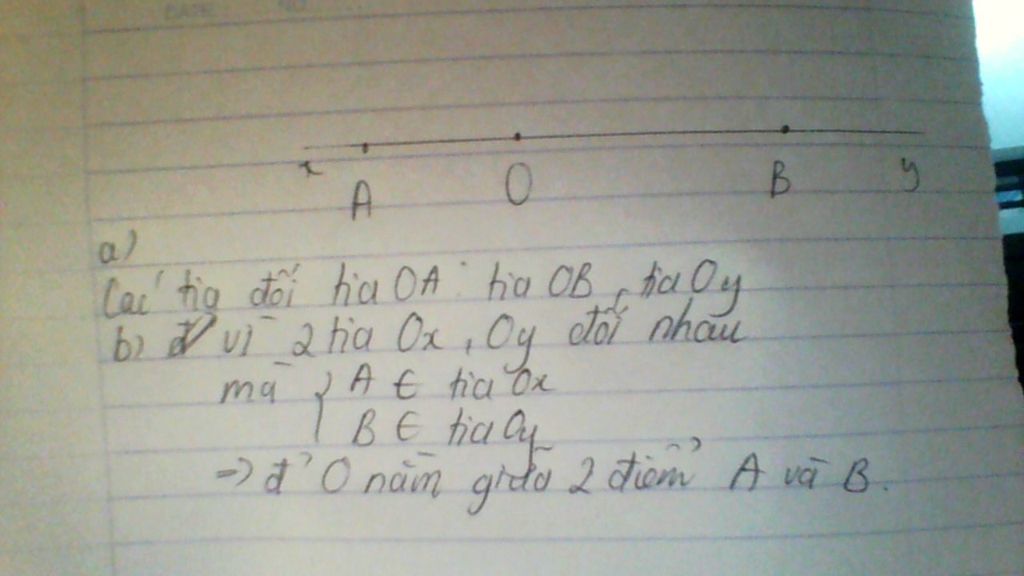 x A O B y
a)
Các tia đối tia OA : tia OB, tia Oy
b) vì 2 tia Ox, Oy đối nhau
mà { A ∈ tia Ox
B ∈ tia Oy
=> đ' O nằm giữa 2 điểm A và B.